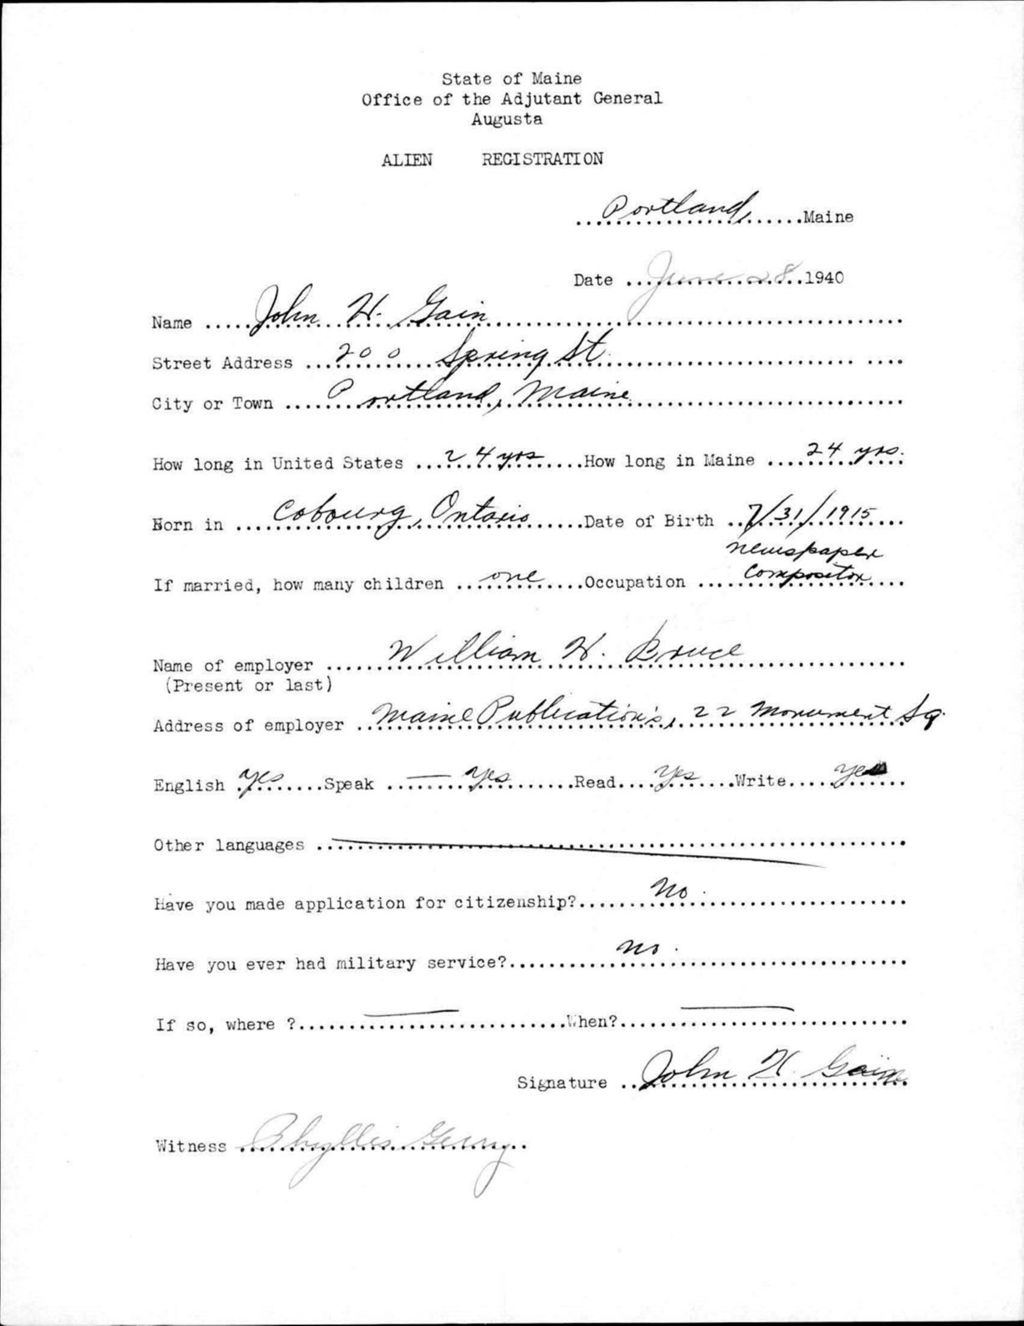 State of Maine
Office of the Adjutant General
Augusta
ALIEN REGISTRATION
Portland, Maine
Date June 28 1940
Name John H. Gain
Street Address 200 Spring St.
City or Town Portland, Maine
How long in United States 24 yrs How long in Maine 24 yrs.
Born in Cobourg, Ontario Date of Birth 7/31/1915
newspaper
If married, how many children one Occupation compositor
Name of employer William H. Bruce
(Present or last)
Address of employer Maine Publications, 22 Monument Sq.
English yes Speak — yes Read yes Write yes
Other languages —
Have you made application for citizenship? No.
Have you ever had military service? no.
If so, where ? — When? —
Signature John H. Gain
Witness Phyllis Gerry